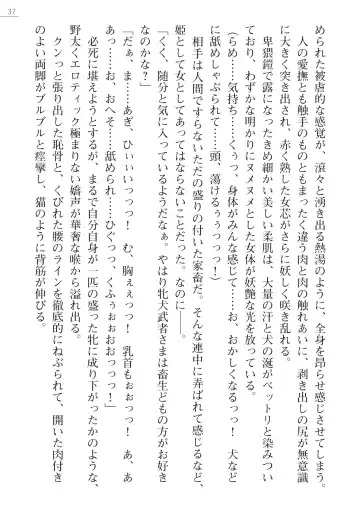 37
められた被虐的な感覚が、滾々と湧き出る熱湯のように、全身を昂らせ感じさせてしまう。
人の愛撫とも触手のものともまったく違う肉と肉の触れあいに、剥き出しの尻が無意識
に大きく突き出され、赤く熟した女芯がさらに妖しく咲き乱れる。
卑猥鎧で露になったきめ細かい美しい柔肌は、大量の汗と犬の涎がベットリと染みつい
ており、わずかな明かりにヌメヌメとした女体が妖艶な光を放っている。
(らめ……気持ち……くぅっ、身体がみんな感じて……お、おかしくなるっっ！ 犬など
に舐めしゃぶられて……頭、蕩けるぅぅぅっっ！)
相手は人間ですらないただの盛りの付いた家畜だ。そんな連中に弄ばれて感じるなど、
姫として女としてあってはならないことだった。なのに――。
「くく、随分と気に入っているようだなぁ。やはり牝犬武者さまは畜生どもの方がお好き
なのかな？」
「だぁ、ま……ひぃぃぃっっっ！ む、胸ぇぇっっ！ 乳首もぉぉっっ！ あ、あ
あっ……お、おへそ……舐められ……ひぐっっ、くふぅぉぉおっっっ！」
必死に堪えようとするが、まるで自分自身が一匹の盛った牝に成り下がったかのような、
野太くエロティック極まりない嬌声が華奢な喉から溢れる。
クンっと張り出した恥骨と、くびれた腰のラインを徹底的にねぶられて、開いた肉付き
のよい両脚がブルブルと痙攣し、猫のように背筋が伸びる。